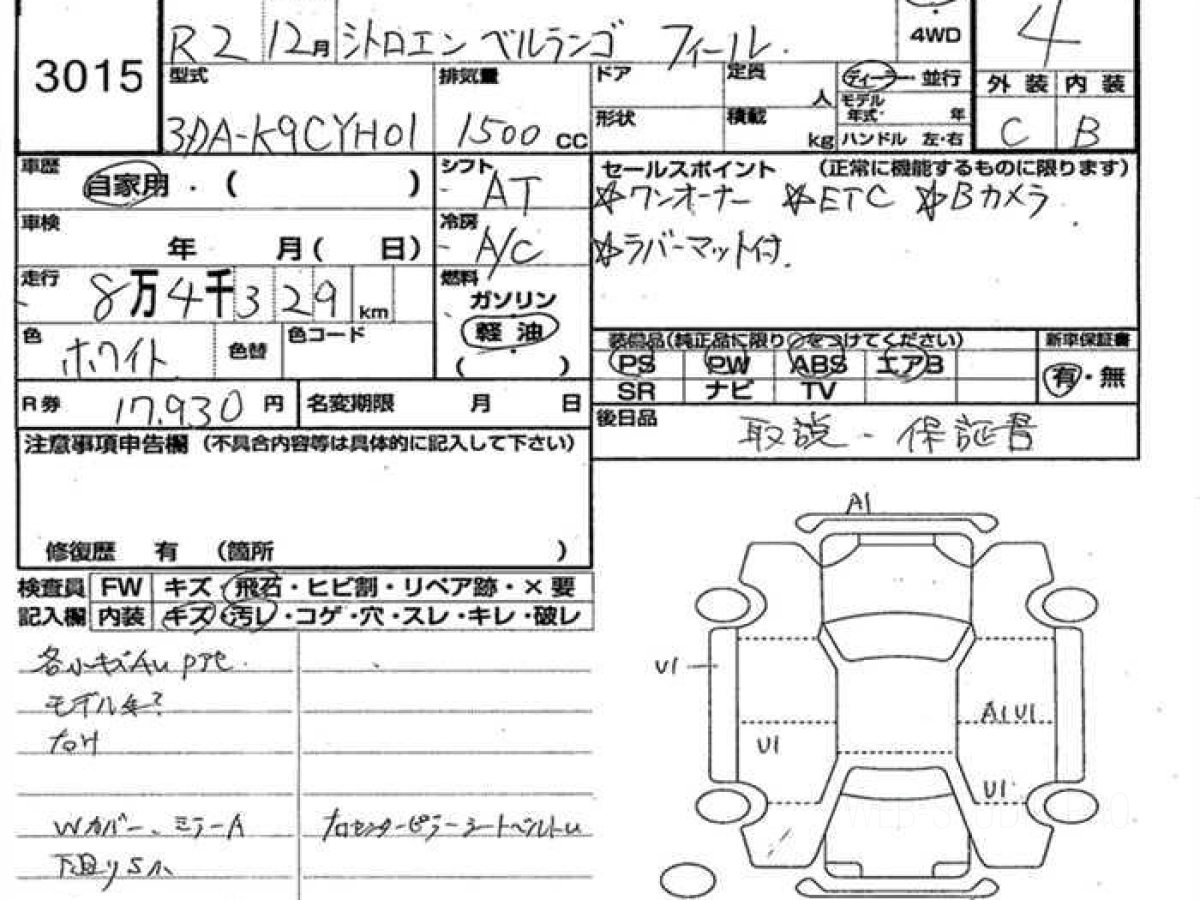 3015
R2 12月 シトロエン ベルランゴ フィール.
4WD
4
型式 3DA-K9CYH01
排気量 1500 cc
ドア
定員 人
ディーラー・並行
形状
積載 kg
モデル年式 年
ハンドル 左・右
外装 内装
C B
車歴 自家用 ・ ( )
シフト AT
セールスポイント (正常に機能するものに限ります)
☆ワンオーナー ☆ETC ☆Bカメラ
☆ラバーマット付.
車検 年 月( 日)
冷房 A/C
走行 8万4千329 km
燃料 ガソリン
軽油
( )
色 ホワイト 色替 色コード
装備品(純正品に限り○をつけてください)
新車保証書
PS PW ABS エアB
有・無
SR ナビ TV
R券 17,930 円 名変期限 月 日
後日品 取説 - 保証書
注意事項申告欄 (不具合内容等は具体的に記入して下さい)
修復歴 有 (箇所 )
検査員 FW キズ・飛石・ヒビ割・リペア跡・×要
記入欄 内装 キズ・汚レ・コゲ・穴・スレ・キレ・破レ
各小キズAU
モデル年?
Wカバー、ミラーA
下廻りS小
センターピラーシートベルトU
A1
U1
A1 U1
U1
U1